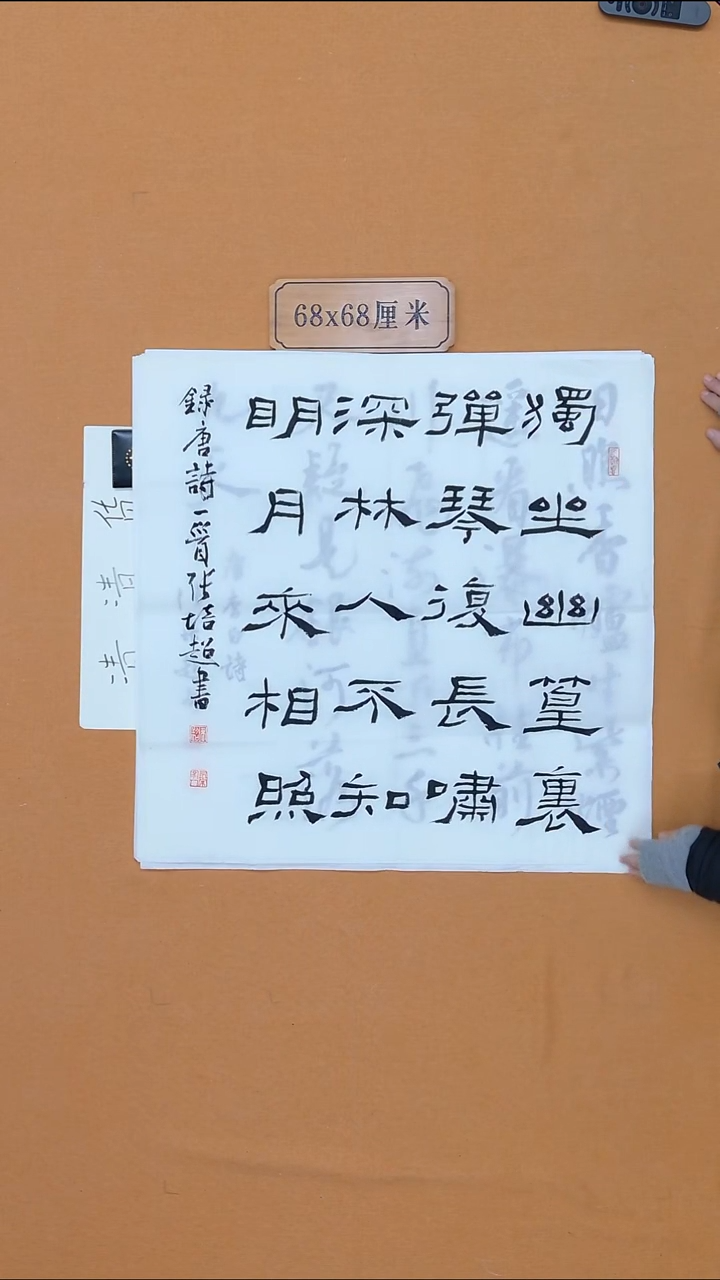 68x68厘米
獨坐幽篁裏
彈琴復長嘯
深林人不知
明月來相照
錄唐詩一首張培超書